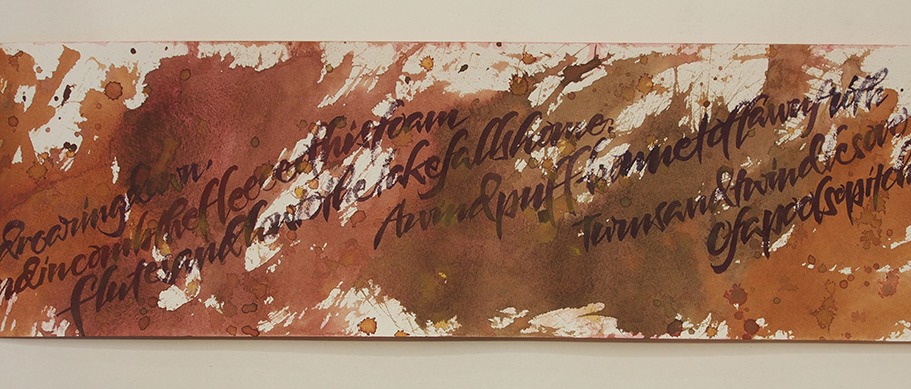 d roaring down,
nd in comb the fleece of his foam
flutes and low to the lake falls home.
A windpuff-bonnet of fawn froth
Turns and twindles ov
Of a pool so pitch